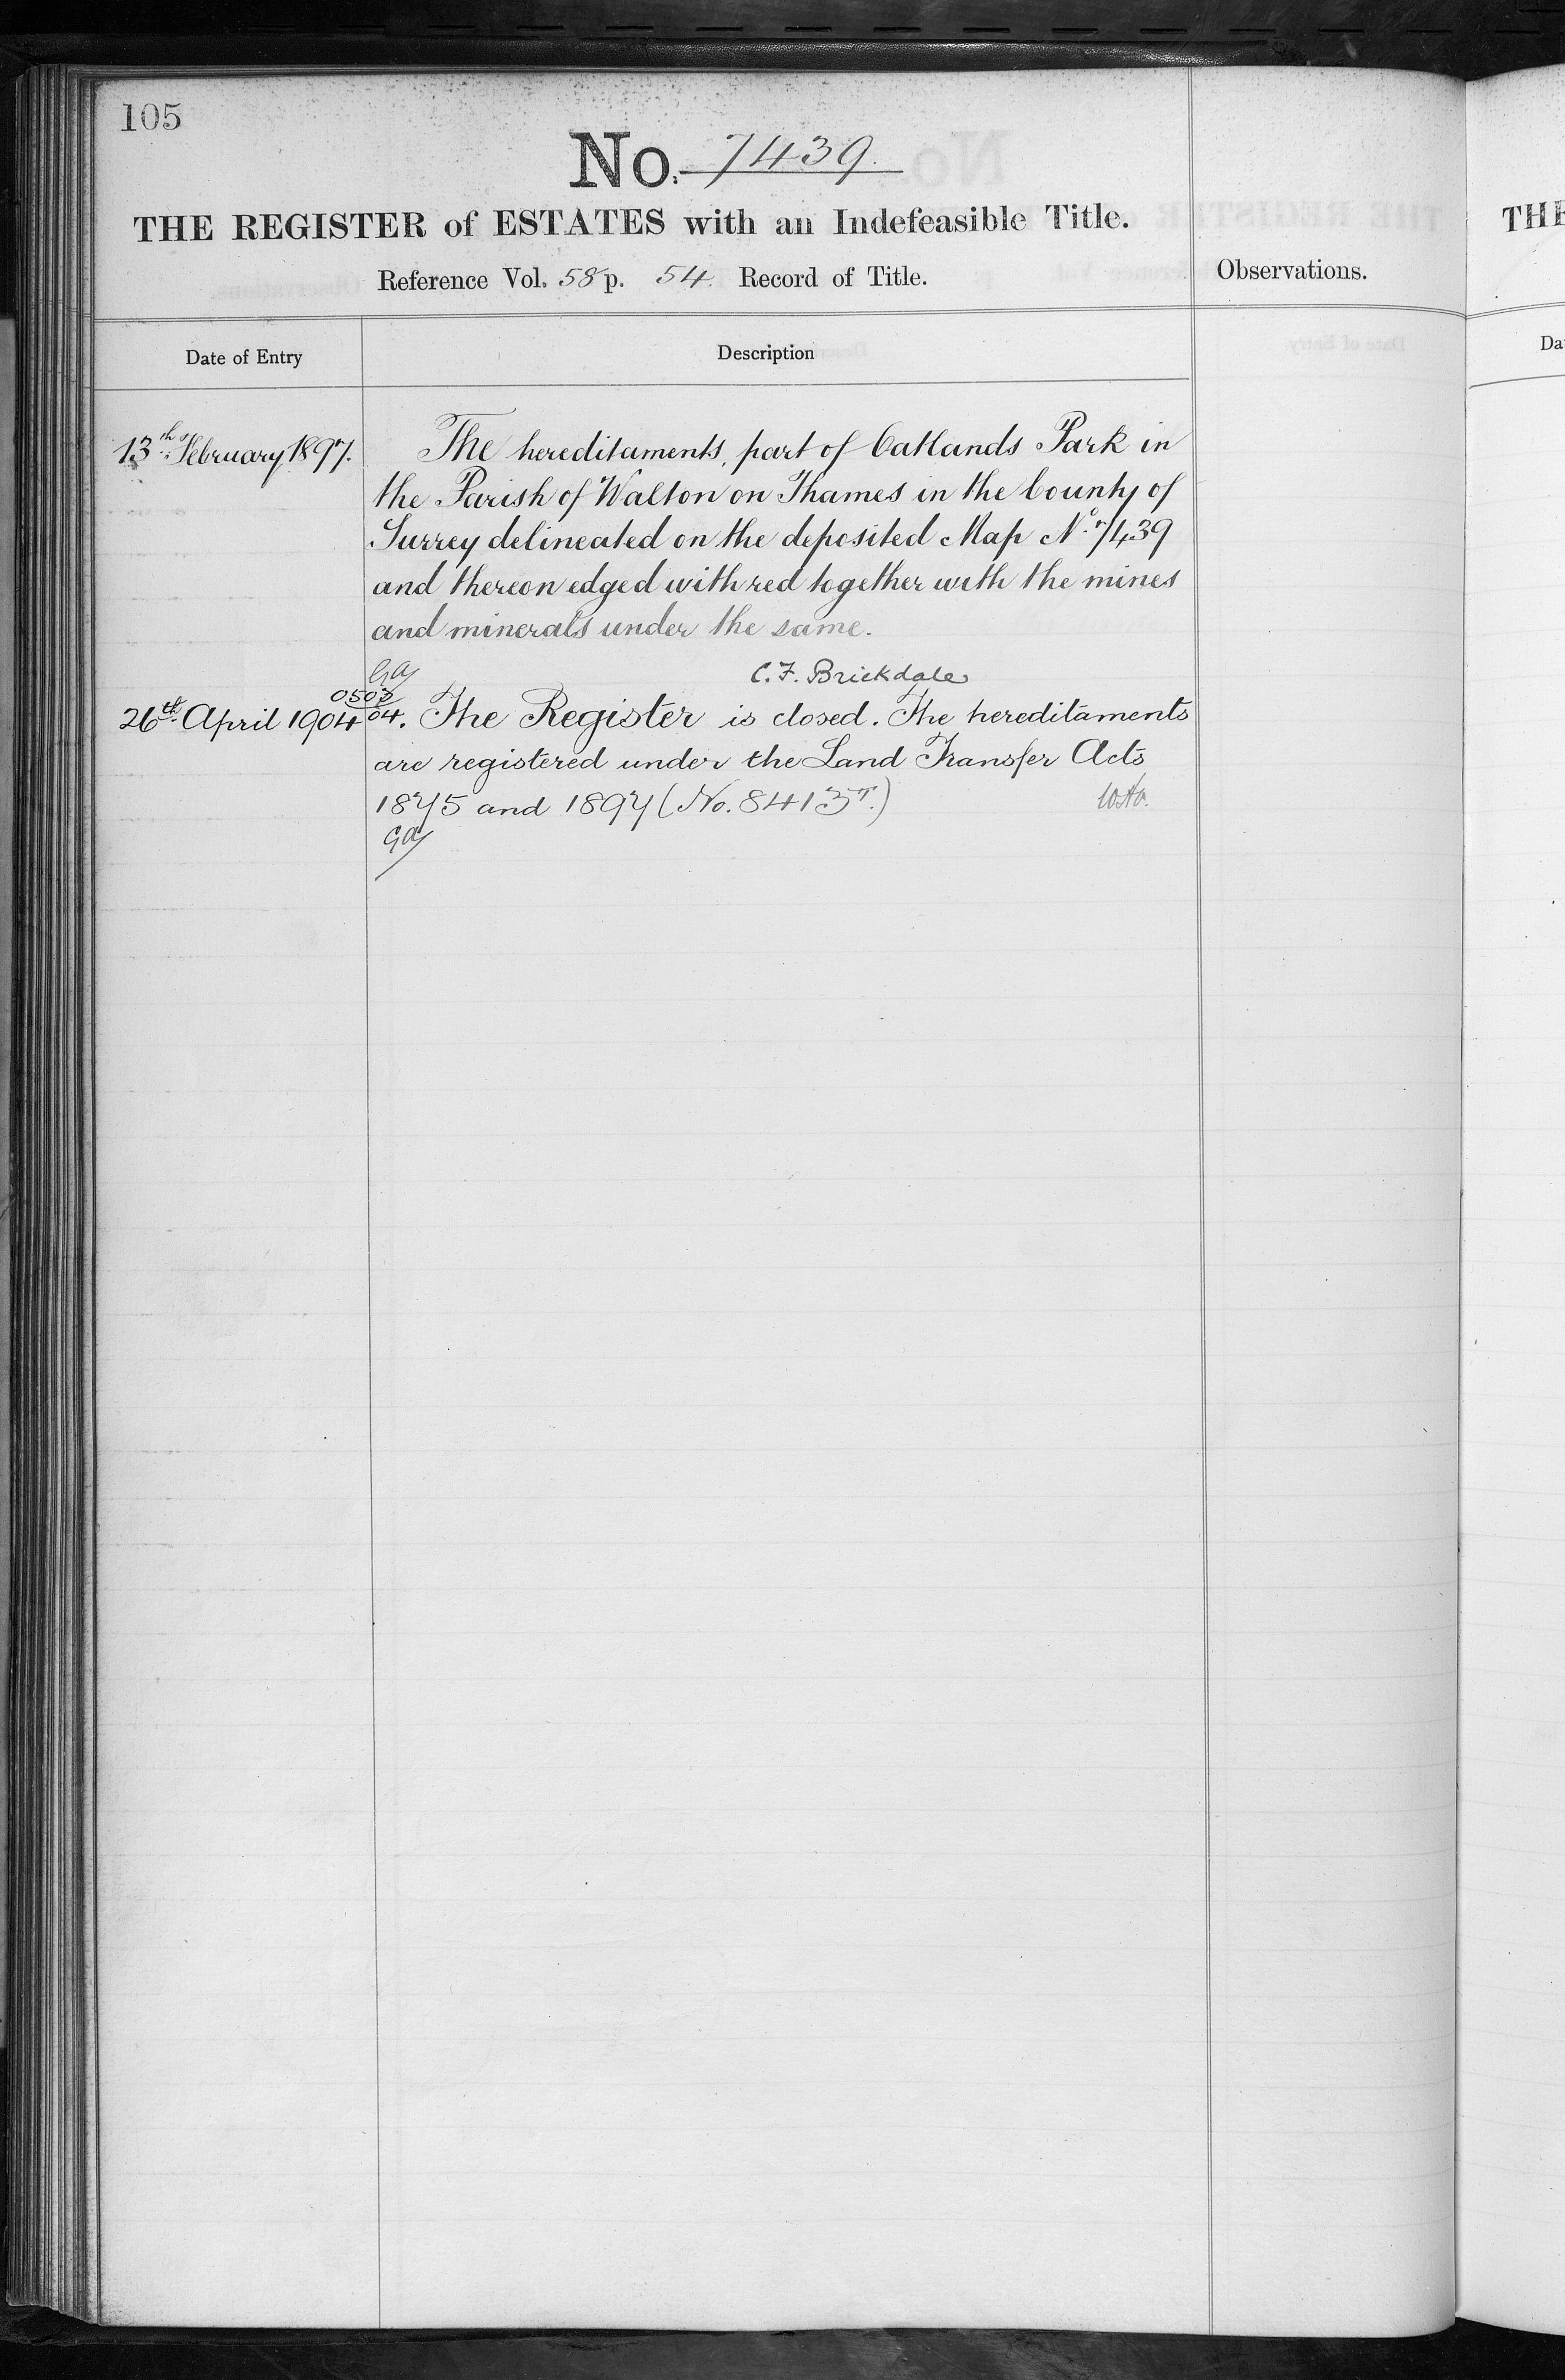 105
No. 7439.
THE REGISTER of ESTATES with an Indefeasible Title.
Reference Vol. 58 p. 54. Record of Title.
Observations.
Date of Entry
Description
13th February 1897.
The hereditaments, part of Oatlands Park in
the Parish of Walton on Thames in the County of
Surrey delineated on the deposited Map No. 7439
and thereon edged with red together with the mines
and minerals under the same.
C. F. Brickdale
26th April 1904
0503
04. The Register is closed. The hereditaments
are registered under the Land Transfer Acts
1875 and 1897 (No. 8413T.)
THE
Da